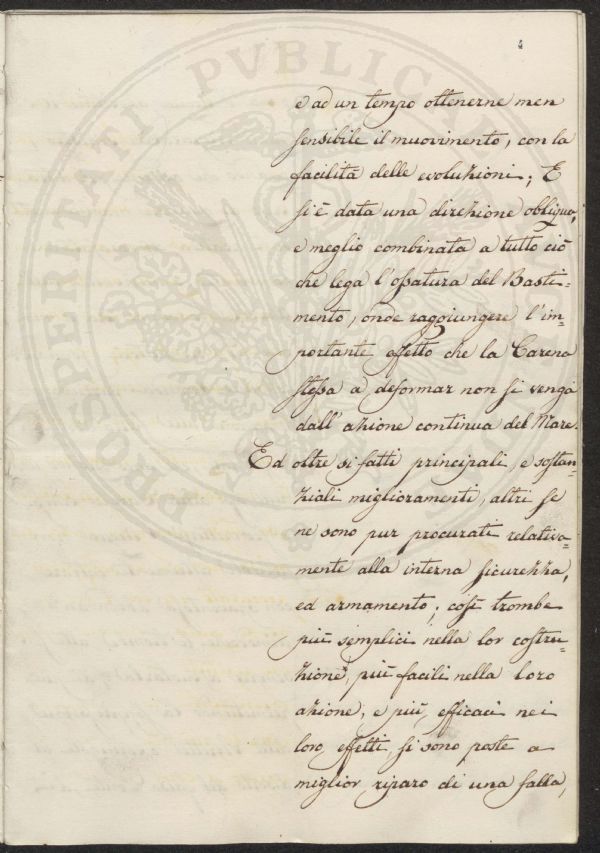 4
e ad un tempo ottenerne men
sensibile il muovimento, con la
facilità delle evoluzioni; E
si è data una direzione obliqua,
e meglio combinata a tutto ciò
che lega l'ossatura del Basti=
mento, onde raggiungere l'im=
portante effetto che la Carena
stessa a deformar non si venga
dall'azione continua del Mare.
Ed oltre sì fatti principali, e sostan=
ziali miglioramenti, altri se
ne sono pur procurati relativa=
mente alla interna sicurezza,
ed armamento; così trombe
più semplici nella lor costru=
zione, più facili nella loro
azione, e più efficaci nei
loro effetti si sono poste a
miglior riparo di una falla,
PROSPERITATI PVBLICAE